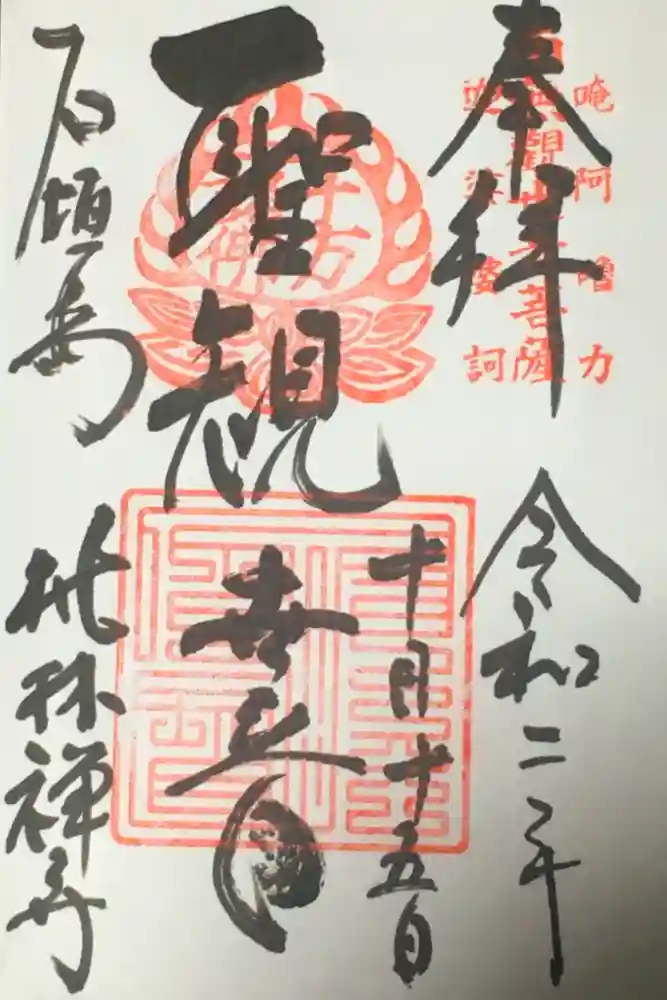 奉拝
令和二年
十月十五日
唵阿嚕力
南無觀世音菩薩
迦娑婆訶
聖観世音
石垣島
桃林禅寺